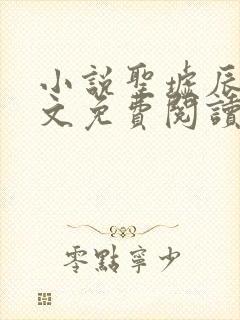 小說聖墟辰
文免費閱讀
零點寧少